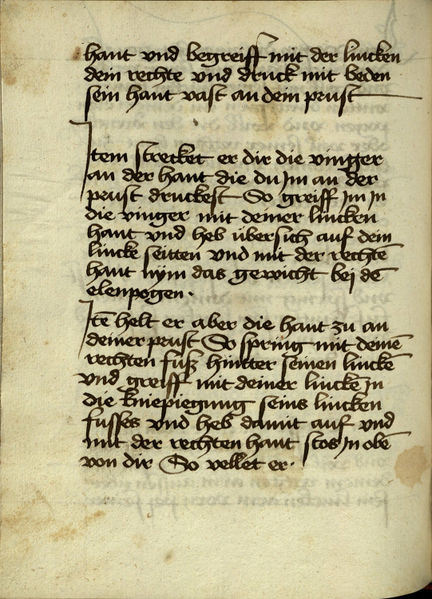 hant vnd begreiff mit der lincken
dein rechte vnd druck mit beden
sein hant vast an dein prust
Item strecket er dir die vingger
an der hant die du Im an der
prust druckest So greiff Im In
die vinger mit deiner lincken
hant vnd heb übersich auf dein
lincke seitten vnd mit der rechtē
hant nÿm das gewicht bei dē
elenpogen ·
Itē helt er aber die hant zu an
deiner prust So spring mit deinē
rechten fuß hintter seinen linckē
vnd greiff mit deiner lincke In
die kniepiegung seins lincken
fusses vnd heb damit auf vnd
mit der rechten hant stos In obē
von dir So vellet er ·